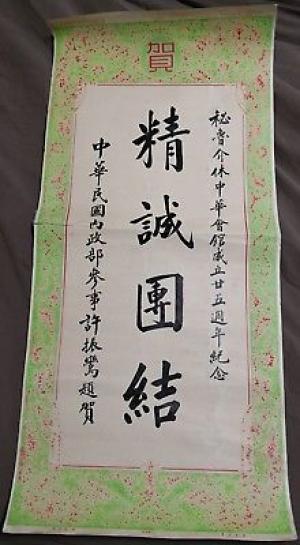 賀
秘魯介休中華會館成立廿五週年紀念
精誠團結
中華民國內政部參事許振題賀